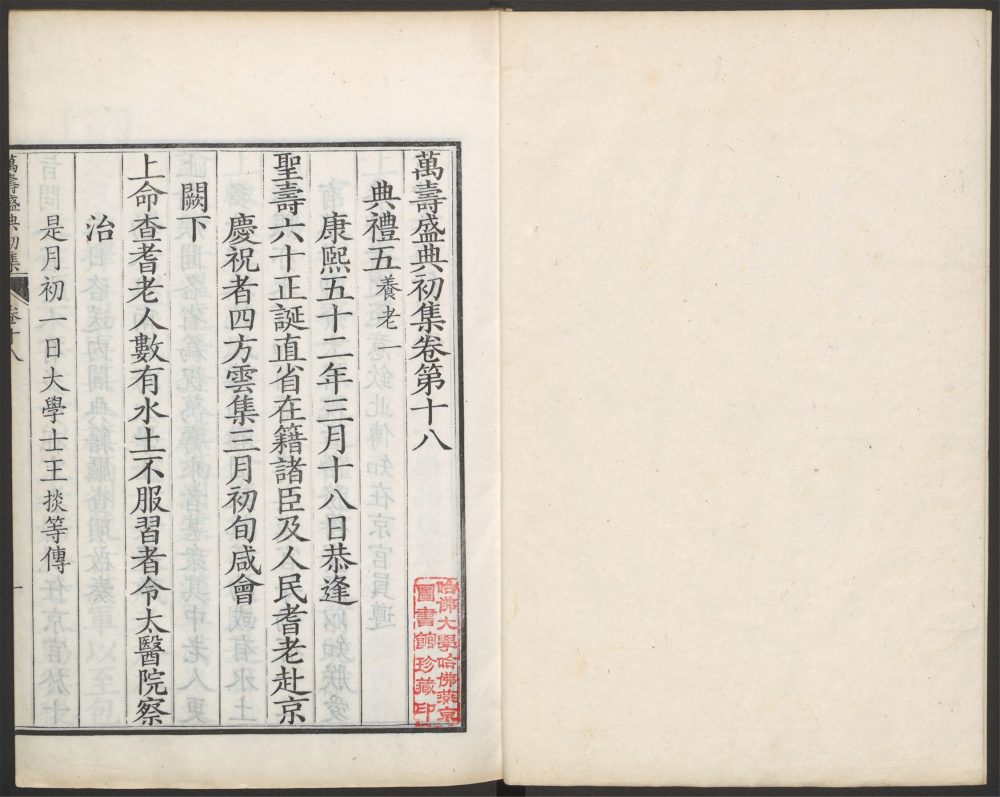 萬壽盛典初集卷第十八
典禮五 養老一
康熙五十二年三月十八日恭逢
聖壽六十正誕直省在籍諸臣及人民耆老赴京
慶祝者四方雲集三月初旬咸會
闕下
上命查耆老人數有水土不服習者令太醫院察
治
是月初一日大學士王掞等傳
萬壽盛典初集 卷十八 一
哈佛大學哈佛燕京
圖書館珍藏印